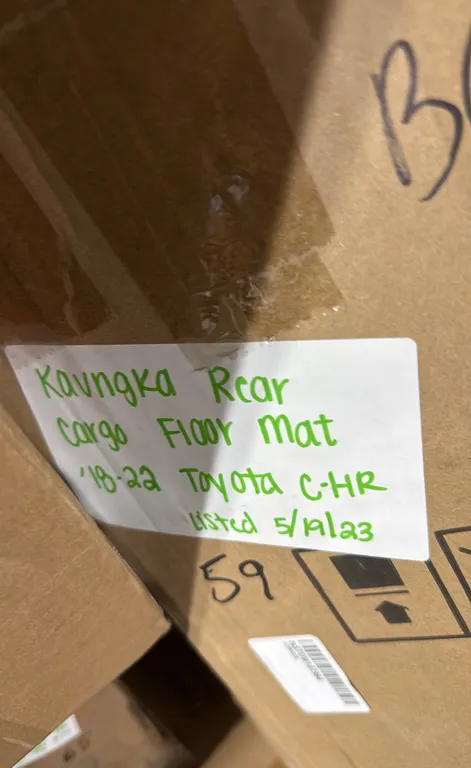 B
Kavngka Rear
Cargo Floor Mat
'18-22 Toyota C-HR
Listed 5/19/23
59